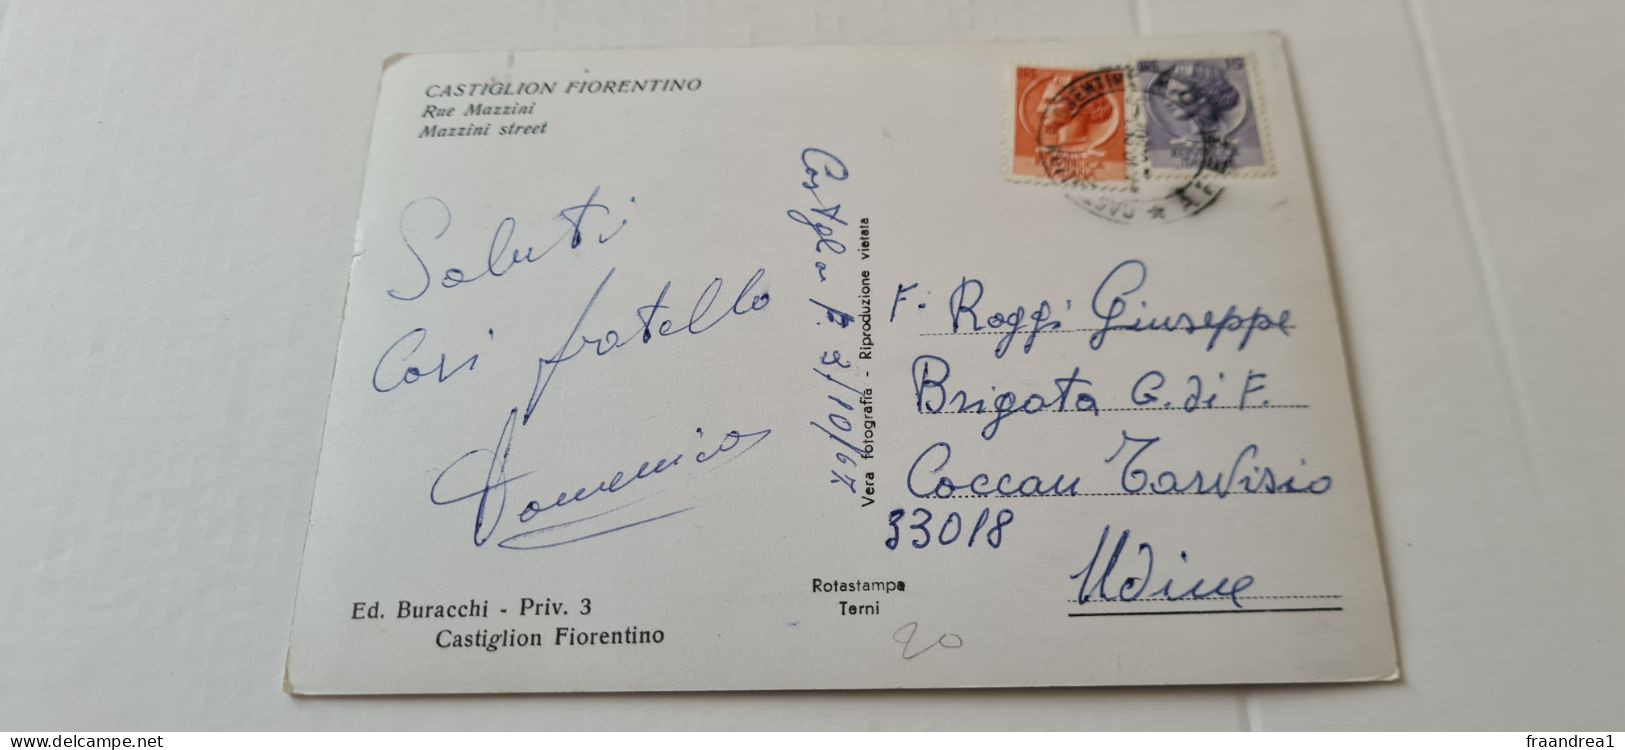 CASTIGLION FIORENTINO
Rue Mazzini
Mazzini street
Saluti
Cari fratello
Domenico
Ed. Buracchi - Priv. 3
Castiglion Fiorentino
Castiglion F. 3/10/67
Vera fotografia - Riproduzione vietata
Rotastampa
Terni
20
LIRE
LIRE 15
F. Roggi Giuseppe
Brigata G. di F.
Coccau Tarvisio
33018
Udine
delcampe.net
fraandrea1